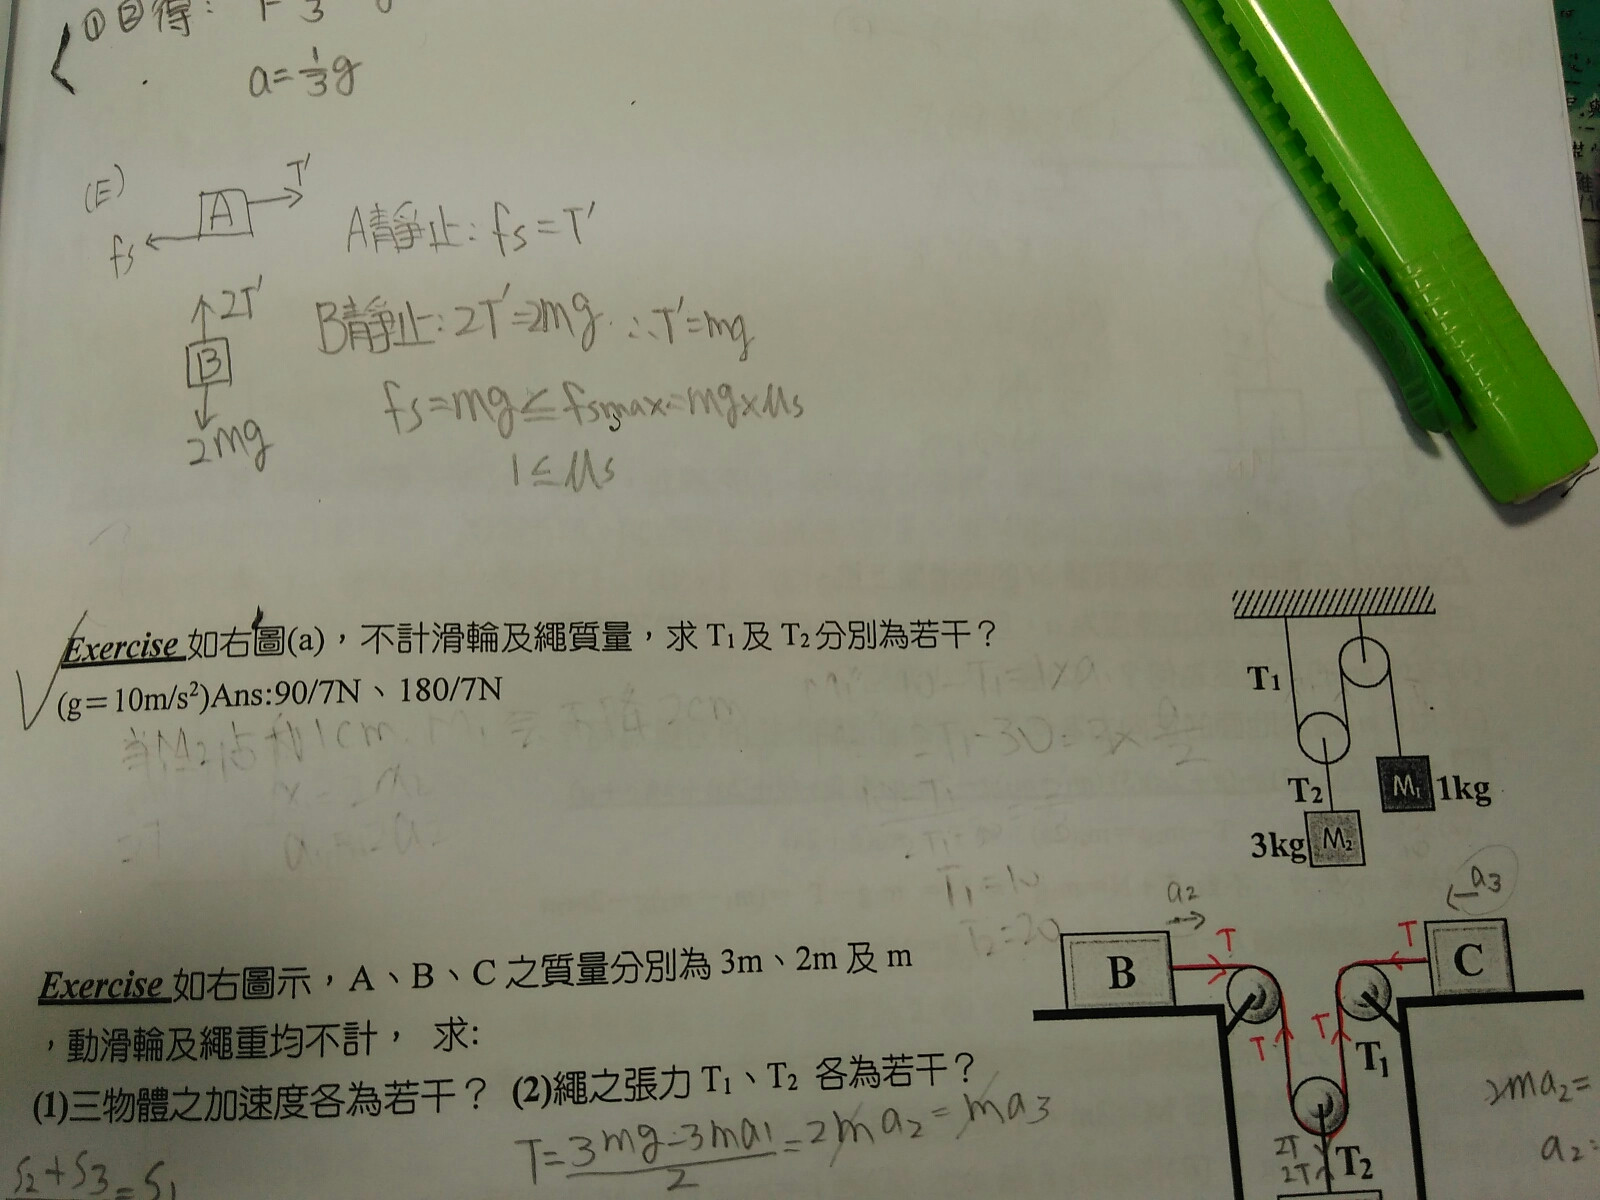 ①②得:
a=1/3g
(E)
A
T'
fs
A靜止: fs=T'
2T'
B
2mg
B靜止: 2T'=2mg ∴T'=mg
fs=mg≤fsmax=mg×μs
1≤μs
Exercise 如右圖(a)，不計滑輪及繩質量，求 T1及 T2分別為若干？
(g＝10m/s²)Ans:90/7N、180/7N
T1
T2
M1 1kg
3kg M2
T1=10
T2=20
Exercise 如右圖示，A、B、C 之質量分別為 3m、2m 及 m
，動滑輪及繩重均不計， 求:
(1)三物體之加速度各為若干？ (2)繩之張力 T1、T2 各為若干？
T=3mg-3ma1/2=2ma2=ma3
S2+S3=S1
a2
a3
B
T
T
C
T
T
T1
2T
2T
T2
2ma2=
a2=